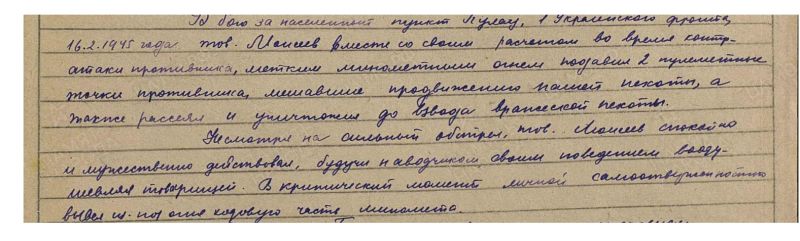 В бою за населенный пункт Кулау, 1 Украинского фронта,
16.2.1945 года тов. Моисеев вместе со своим расчетом во время контр-
атаки противника, метким минометным огнем подавил 2 пулеметные
точки противника, мешавшие продвижению нашей пехоты, а
также рассеял и уничтожил до взвода вражеской пехоты.
Несмотря на сильный обстрел, тов. Моисеев спокойно
и мужественно действовал, будучи наводчиком, своим поведением вооду-
шевлял товарищей. В критический момент личной самоотверженностью
вывел из-под огня ходовую часть миномета.